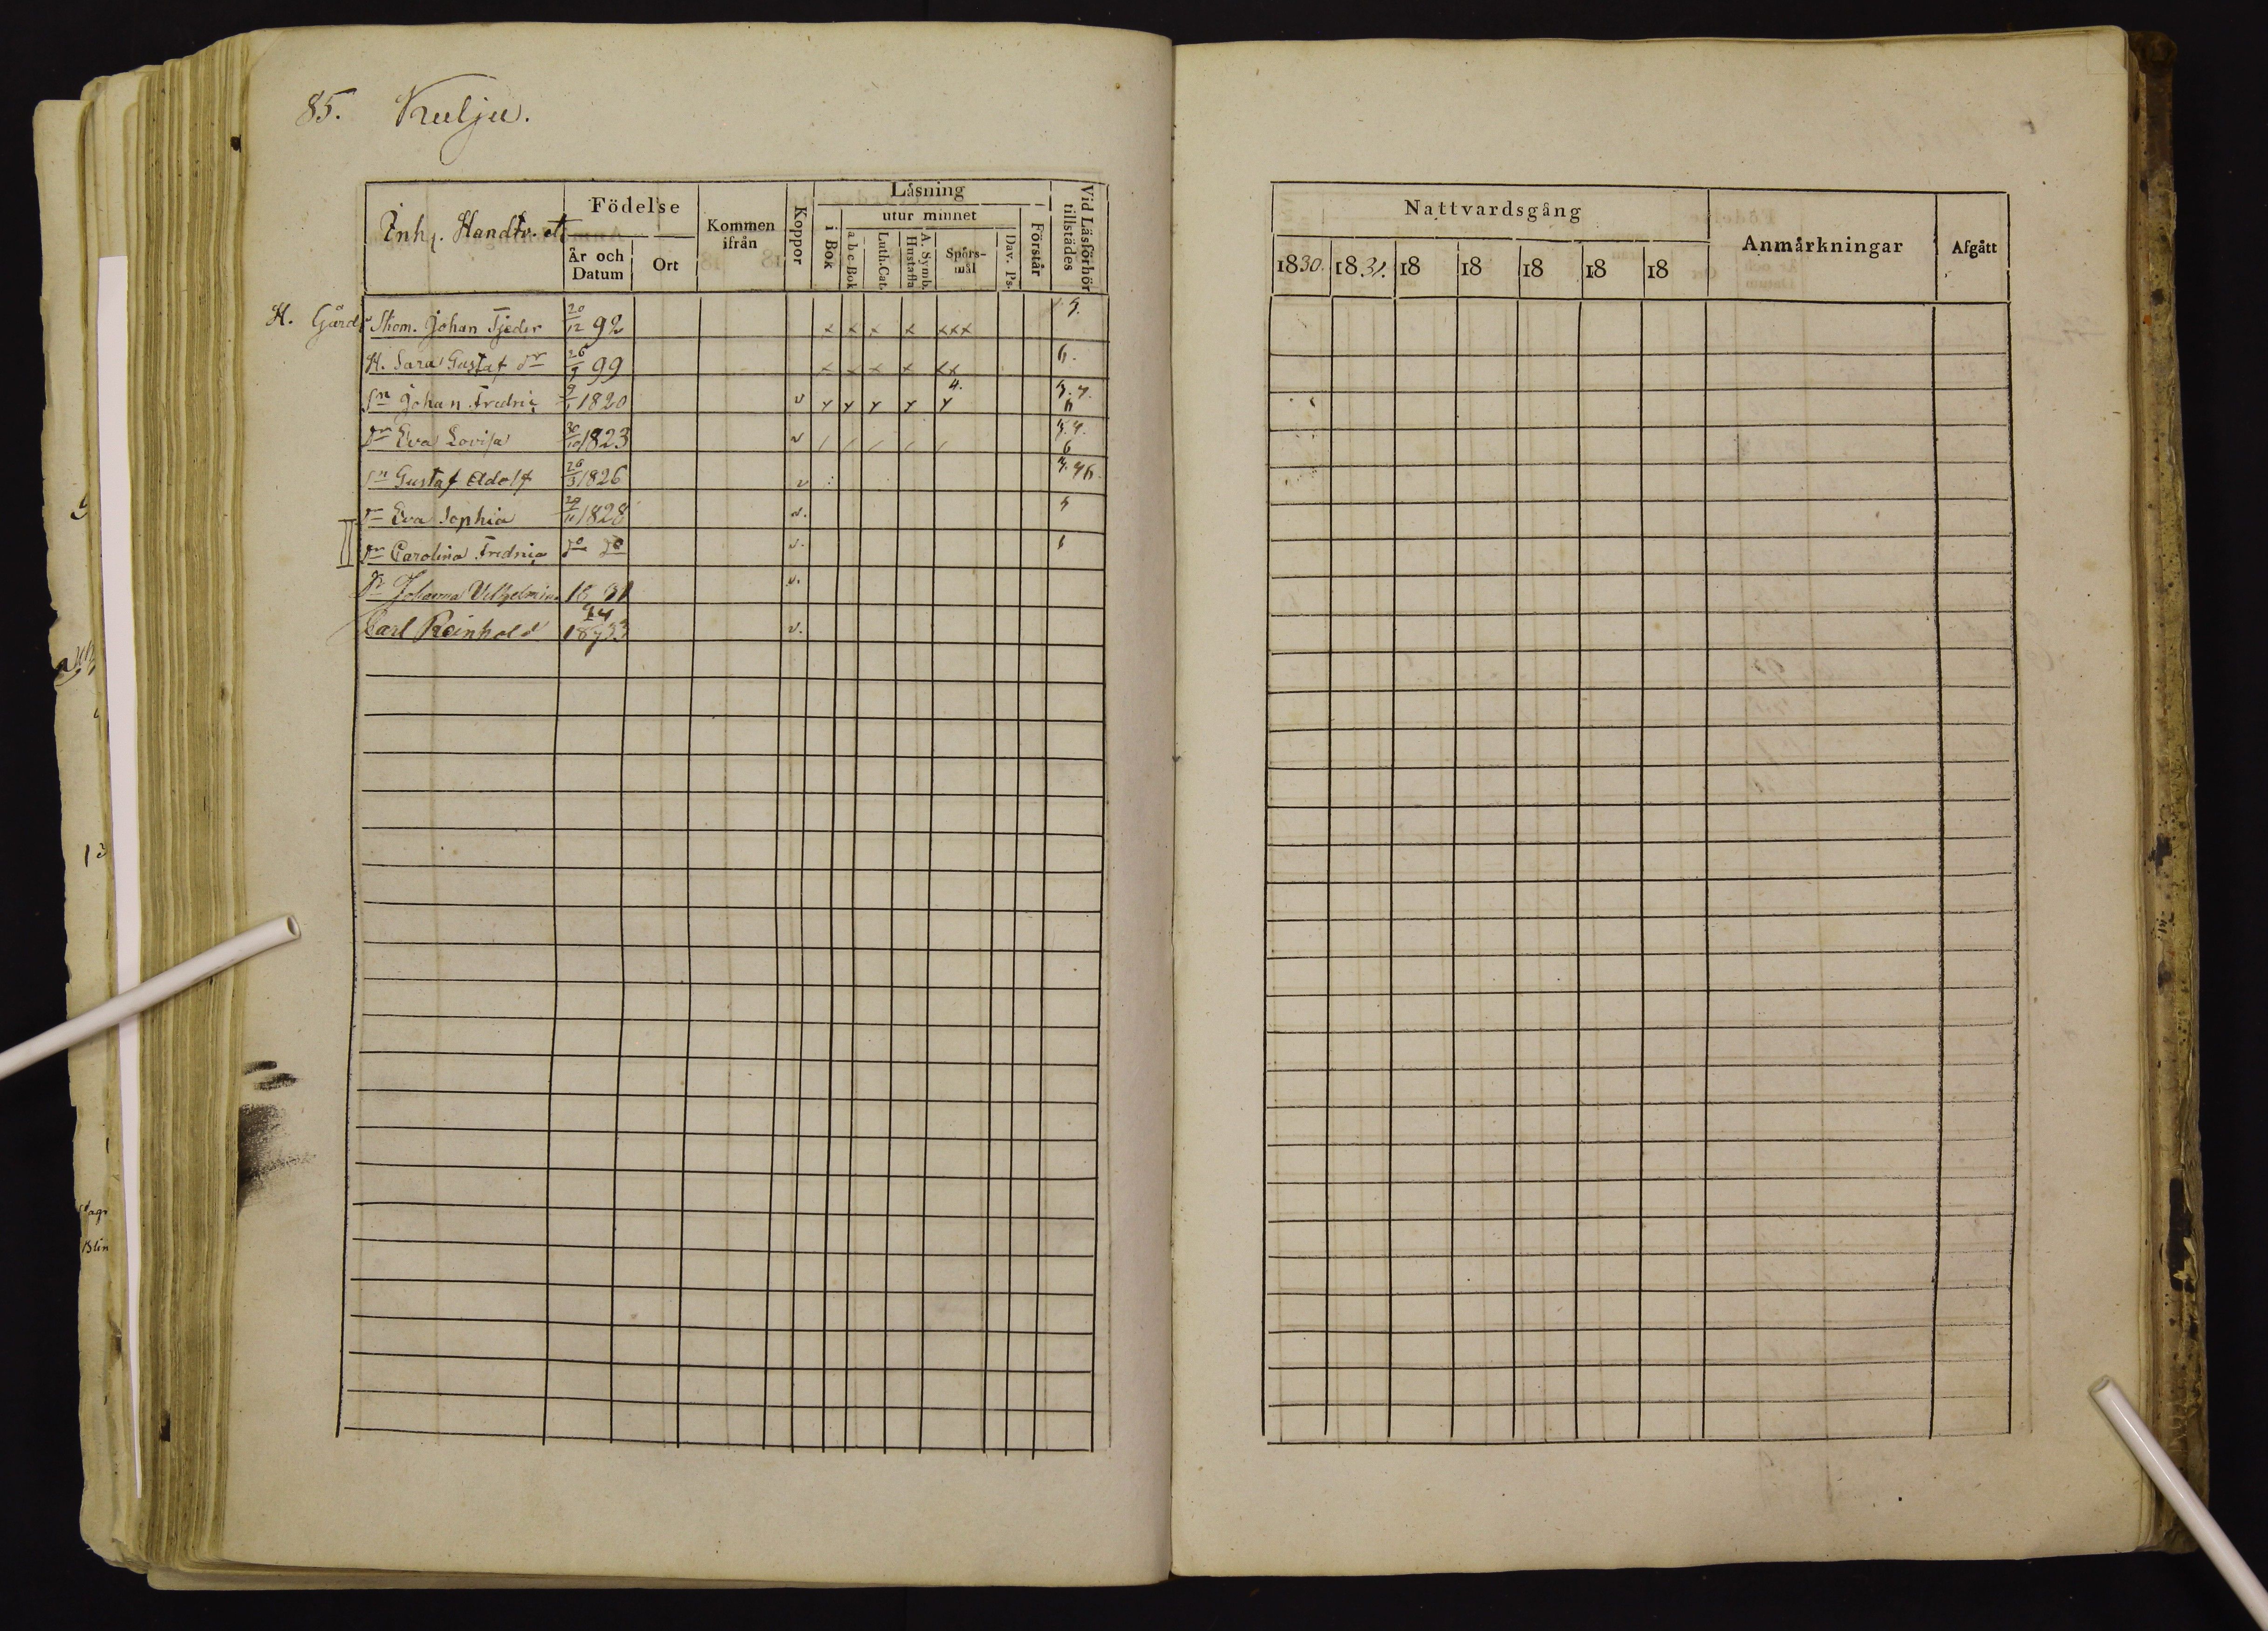 85. Kulju.
Inh. Handtv. etc
Födelse
År och Datum
Ort
Kommen ifrån
Koppor
Läsning
i Bok
utur minnet
a b c-Bok
Luth. Cat.
A. Symb. Hustafla
Spörsmål
Dav. Ps.
Förstår
Vid Läsförhör tillstädes
H. Gårds Skom. Johan Tjeder 20/12 92 x x x x xxx 5.
H. Sara Gustaf dr 26/9 99 x x x x xx 6.
Sn Johan Fredric 9/1 1820 v y y y y y 4. 5. 7. 6
Dr Eva Lovisa 30/10 1823 v / / / / / 5. 7. 6
Sn Gustaf Adolf 26/3 1826 v 5. 7 6
Dr Eva Sophia 29/11 1828 v. 5
II Dr Carolina Fredrica do do v. 6
Dr Johanna Vilhelmina 18 31 v.
Carl Reinhold 1833 v.
Nattvardsgång
1830. 1831. 18 18 18 18 18
Anmärkningar
Afgått